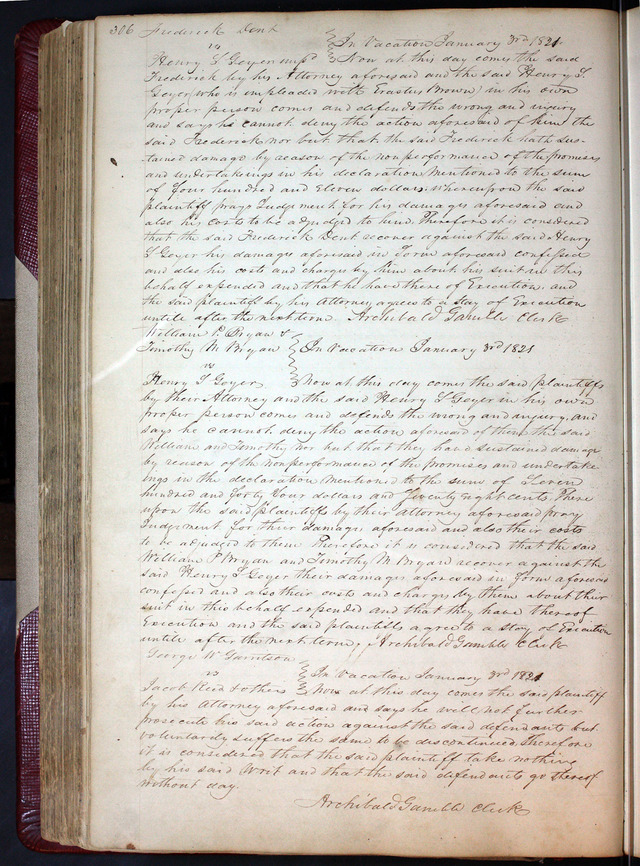 306 Frederick Dent
vs } In Vacation January 3rd 1821
Henry S Geyer impd } Now at this day comes the said
Frederick by his Attorney aforesaid and the said Henry S
Geyer (who is impleaded with Erastus Brown) in his own
proper person comes and defends the wrong and injury
and says he cannot deny the action aforesaid of him the
said Frederick nor but that the said Frederick hath sus-
tained damage by reason of the nonperformance of the promises
and undertakings in his declaration mentioned to the sum
of four hundred and Eleven dollars; whereupon the said
plaintiff prays Judgment for his damages aforesaid and
also his costs to be adjudged to him. Therefore it is considered
that the said Frederick Dent recover against the said Henry
S Geyer his damages aforesaid in form aforesaid confessed
and also his costs and charges by him about his suit in this
behalf expended and that he have thereof Execution. and
the said plaintiff by his Attorney agrees to a stay of Execution
untile after the next term Archibald Gamble Clerk
William P. Bryan &
Timothy M Bryan } In Vacation January 3rd 1821
vs
Henry S Geyer } Now at this day comes the said plaintiffs
by their Attorney and the said Henry S Geyer in his own
proper person comes and defends the wrong and injury. and
says he cannot deny the action aforesaid of them the said
William and Timothy nor but that they have sustained damage
by reason of the nonperformance of the promises and undertake
ings in the declaration mentioned to the sum of Seven
hundred and forty four dollars and seventy eight cents. There
upon the said plaintiffs by their Attorney aforesaid pray
Judgement for their damages aforesaid and also their costs
to be adjudged to them Therefore it is considered that the said
William P Bryan and Timothy M Bryan recover against the
said Henry S Geyer their damages aforesaid in form aforesaid
confessed and also their costs and charges by them about their
suit in this behalf expended and that they have thereof
Execution and the said plaintiffs agree to a stay of Execution
untile after the next term, Archibald Gamble Clerk
George W Garritson
vs } In Vacation January 3rd 1821
Jacob Reid & others } Now at this day comes the said plaintiff
by his Attorney aforesaid and says he will not further
prosecute his said action against the said defendants but
voluntarily suffers the same to be discontinued therefore
it is considered that the said plaintiff take nothing
by his said Writ and that the said defendants go thereof
without day.
Archibald Gamble Clerk